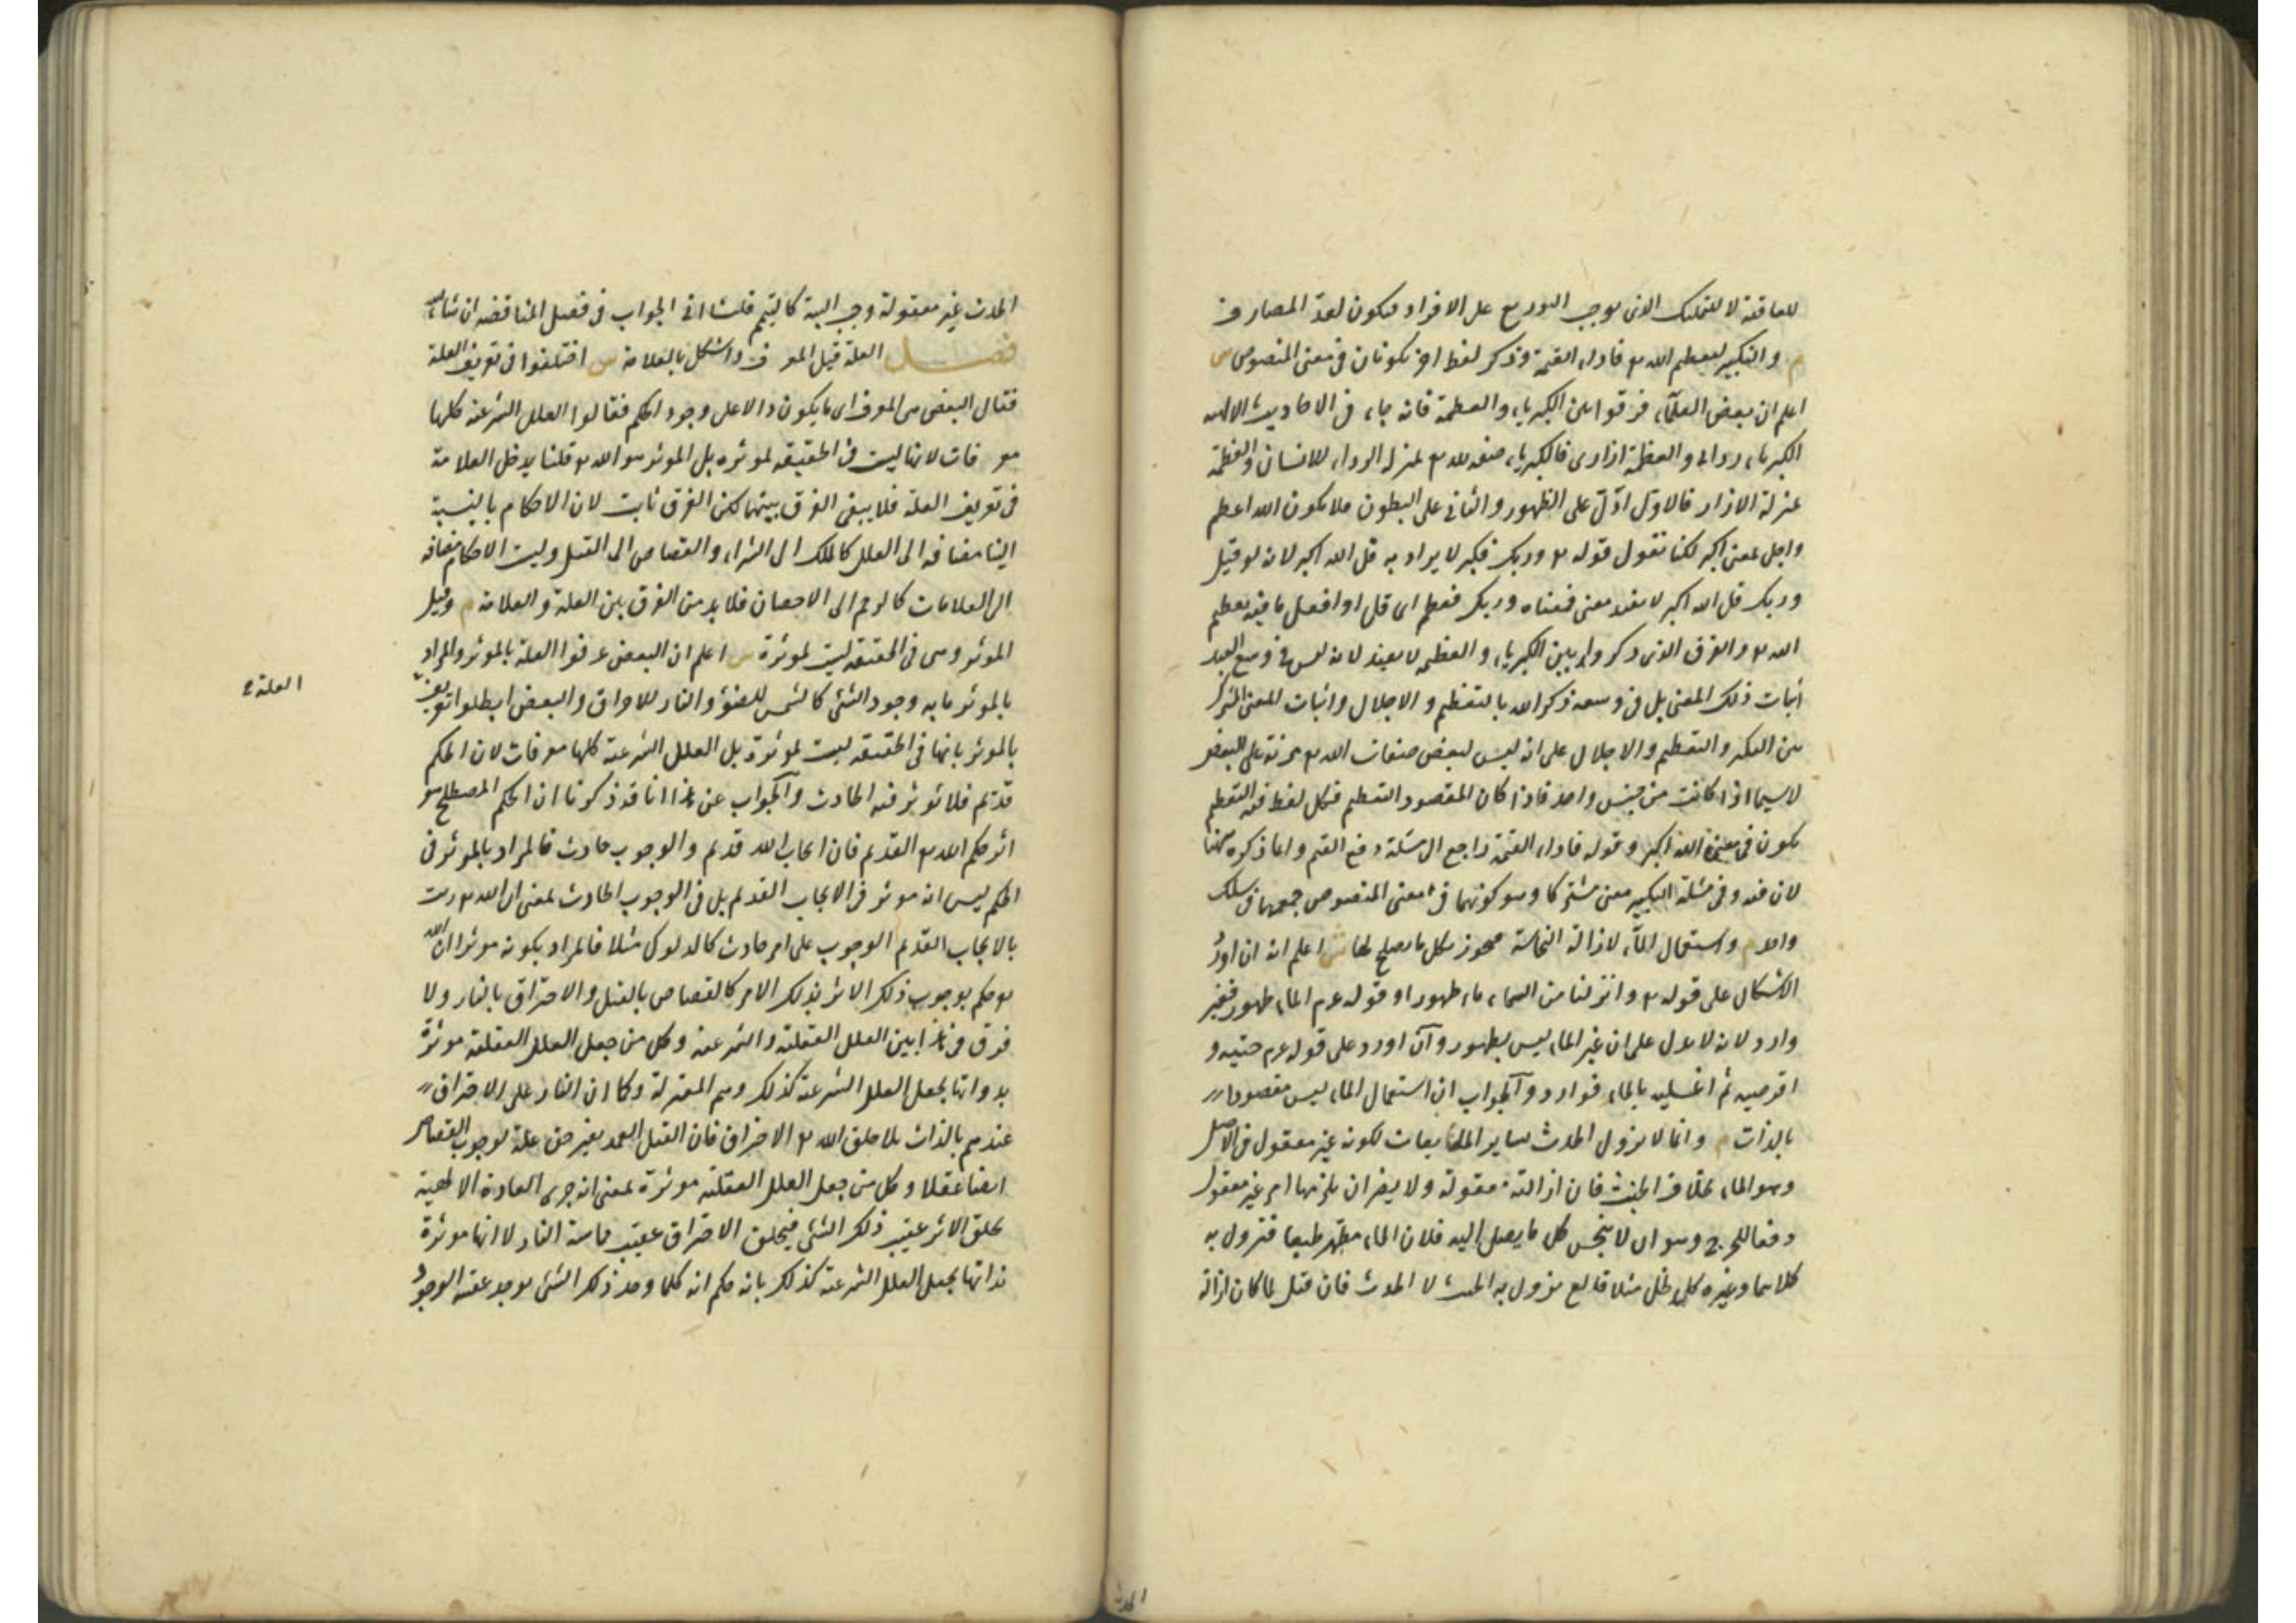 للعاقبة لا للتمليك الذى يوجب التوزيع على الافراد فيكون لعد المصارف
م والتكبير لتعظيم الله تع فاداء القيمة وذكر لفظ اخر يكونان فى معنى المنصوص ش
اعلم ان بعض العلماء فرقوا بين الكبرياء والعظمة فانه جاء فى الاحاديث الالهية
الكبرياء ردائى والعظمة ازارى فالكبرياء صفة لله تع بمنزلة الرداء للانسان والعظمة
بمنزلة الازار فالاول ادل على الظهور والثانى على البطون فلا يكون الله اعظم
واجل بمعنى اكبر لكنا نقول قوله تع وربك فكبر لا يراد به قل الله اكبر لانه لو قيل
وربك قل الله اكبر لا يفيد معنى فمعناه وربك فعظم اى قل او افعل ما فيه تعظيم
الله تع والفرق الذى ذكروا بين الكبرياء والعظمة لا يفيد لانه ليس فى وسع العبد
اثبات ذلك المعنى بل فى وسعه ذكر الله بالتعظيم والاجلال واثبات المعنى المشترك
بين التكبير والتعظيم والاجلال على انه ليس لبعض صفات الله تع مزية على البعض
لاسيما اذا كانت من جنس واحد فاذا كان المقصود التعظيم فكل لفظ فيه التعظيم
يكون فى معنى الله اكبر وقوله فاداء القيمة راجع الى مسئلة دفع القيم وانما ذكره هنا
لان فيه وفى مسئلة التكبير معنى مشتركا وهو كونهما فى معنى المنصوص جمعهما فى سلك
واحد م واستعمال الماء لازالة النجاسة فيجوز بكل ما يصلح لها ش اعلم انه ان اورد
الاشكال على قوله تع وانزلنا من السماء ماء طهورا او قوله عم الماء طهور فغير
وارد لانه لا يدل على ان غير الماء ليس بطهور وان اورد على قوله عم حتيه و
اقرصيه ثم اغسليه بالماء فوارد والجواب ان استعمال الماء ليس مقصودا
بالذات م وانما لا يزول الحدث بسائر المائعات لكونه غير معقول فى الاصل
وهو الماء بخلاف الخبث فان ازالته معقولة ولا يضر ان يلزمها امر غير معقول
دفعا للحرج وهو ان لا ينجس كل ما يصل اليه فلان الماء مطهر طبعا فتزول به
كلاهما وغيره كالخل مثلا قالع يزول به الخبث لا الحدث فان قيل لما كان ازالة
الحدث
الحدث غير معقولة وجب النية كالتيمم قلت ياتى الجواب فى فصل المناقضة ان شاء الله
فصل العلة قيل المعرف واشكل بالعلامة ش اختلفوا فى تعريف العلة
فقال البعض هى المعرف اى ما يكون دالا على وجود الحكم فقالوا العلل الشرعية كلها
معرفات لانها ليست فى الحقيقة بمؤثرة بل المؤثر هو الله تع قلنا يدخل العلامة
فى تعريف العلة فلا يبقى الفرق بينهما لكن الفرق ثابت لان الاحكام بالنسبة
الينا مضافة الى العلل كالملك الى الشراء والقصاص الى القتل وليست الاحكام مضافة
الى العلامات كالرجم الى الاحصان فلا بد من الفرق بين العلة والعلامة م وقيل
المؤثر وهى فى الحقيقة ليست بمؤثرة ش اعلم ان البعض عرفوا العلة بالمؤثر والمراد
بالمؤثر ما به وجود الشئ كالشمس للضوء والنار للاحراق والبعض ابطلوا تعريف
العلة
بالمؤثر بانها فى الحقيقة ليست بمؤثرة بل العلل الشرعية كلها معرفات لان الحكم
قديم فلا يؤثر فيه الحادث والجواب عن هذا انا قد ذكرنا ان الحكم المصطلح هو
اثر حكم الله تع القديم فان ايجاب الله قديم والوجوب حادث فالمراد بالمؤثر فى
الحكم ليس انه مؤثر فى الايجاب القديم بل فى الوجوب الحادث بمعنى ان الله تع رتب
بالايجاب القديم الوجوب على امر حادث كالدلوك مثلا فالمراد بكونه مؤثرا ان الله
تع حكم بوجوب ذلك الاثر بذلك الامر كالقصاص بالقتل والاحتراق بالنار ولا
فرق فى هذا بين العلل العقلية والشرعية وكل من جعل العلل العقلية مؤثرة
بذواتها يجعل العلل الشرعية كذلك وهم المعتزلة وكما ان النار علة الاحتراق
عندهم بالذات بلا خلق الله تع الاحتراق فان القتل العمد بغير حق علة لوجوب القصاص
ايضا عقلا وكل من جعل العلل العقلية مؤثرة بمعنى انه جرى العادة الالهية
بخلق الاثر عقيب ذلك الشئ فيخلق الاحتراق عقيب مماسة النار لا انها مؤثرة
بذاتها يجعل العلل الشرعية كذلك بانه حكم انه كلما وجد ذلك الشئ يوجد عقيبه الوجوب